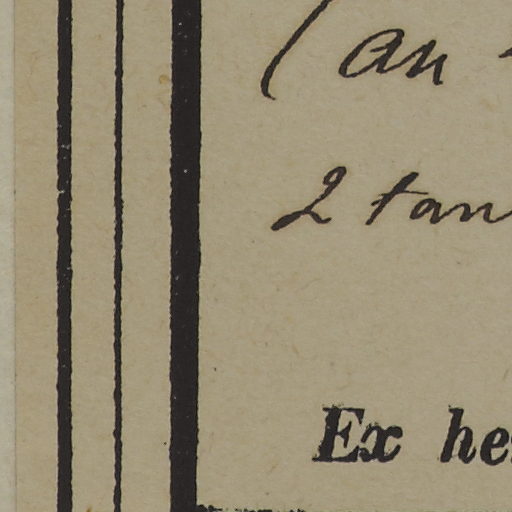 (an
2 tan
Ex he